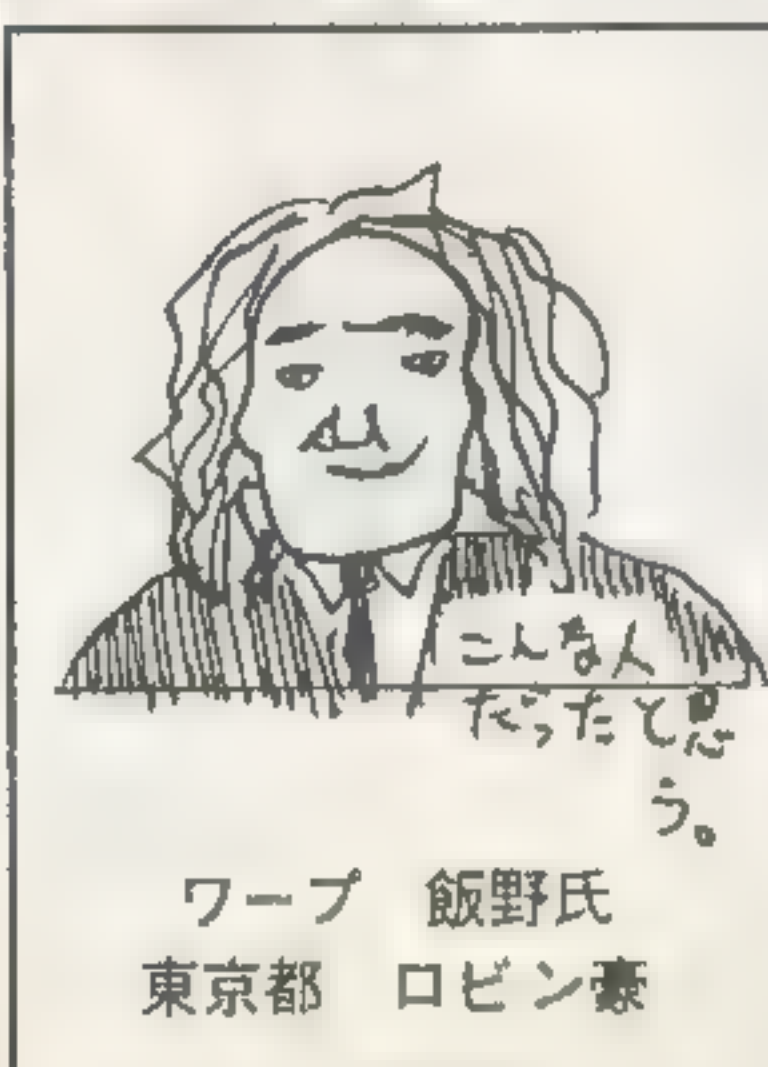 こんな人
だったと思
う。
ワープ　飯野氏
東京都　ロビン豪